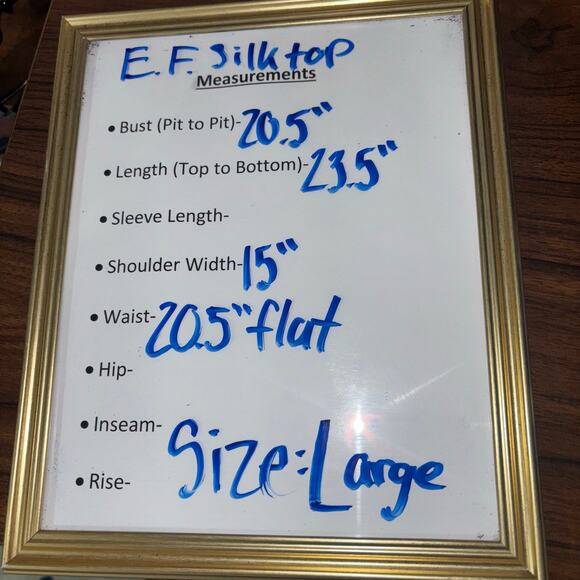 E.F. Silk top
Measurements
• Bust (Pit to Pit)- 20.5"
• Length (Top to Bottom)- 23.5"
• Sleeve Length-
• Shoulder Width- 15"
• Waist- 20.5" flat
• Hip-
• Inseam-
• Rise-
Size: Large